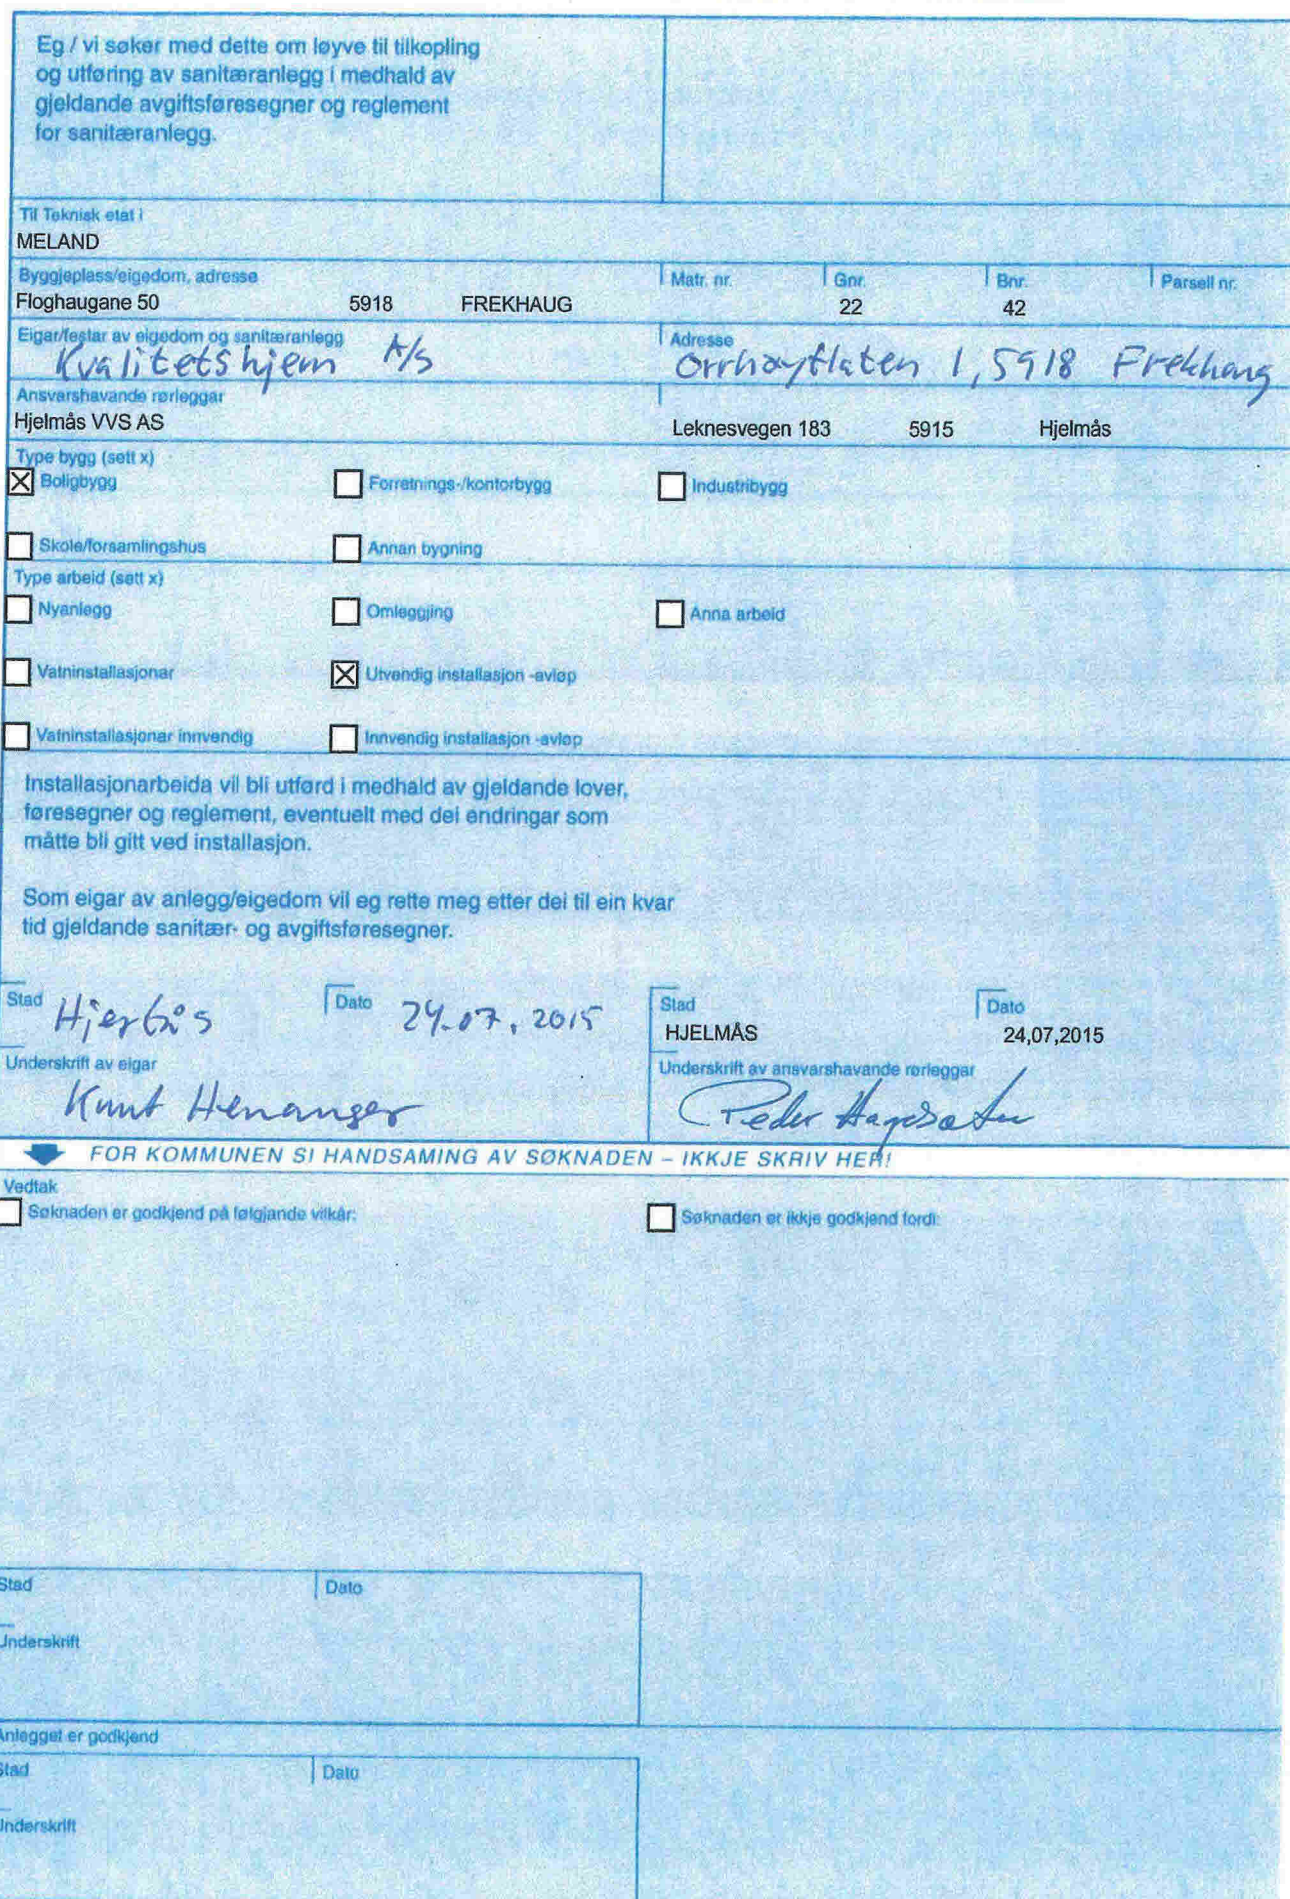 Eg / vi søker med dette om løyve til tilkopling
og utføring av sanitæranlegg i medhald av
gjeldande avgiftsføresegner og reglement
for sanitæranlegg.
Til Teknisk etat i
MELAND
Byggjeplass/eigedom, adresse Matr. nr. Gnr. Bnr. Parsell nr.
Floghaugane 50 5918 FREKHAUG 22 42
Eigar/festar av eigedom og sanitæranlegg Adresse
Kvalitetshjem A/S Orrhøyflaten 1, 5918 Frekhaug
Ansvarshavande rørleggar
Hjelmås VVS AS Leknesvegen 183 5915 Hjelmås
Type bygg (sett x)
Boligbygg Forretnings-/kontorbygg Industribygg
Skole/forsamlingshus Annan bygning
Type arbeid (sett x)
Nyanlegg Omleggjing Anna arbeid
Vatninstallasjonar Utvendig installasjon -avløp
Vatninstallasjonar innvendig Innvendig installasjon -avløp
Installasjonarbeida vil bli utførd i medhald av gjeldande lover,
føresegner og reglement, eventuelt med dei endringar som
måtte bli gitt ved installasjon.
Som eigar av anlegg/eigedom vil eg rette meg etter dei til ein kvar
tid gjeldande sanitær- og avgiftsføresegner.
Stad Dato 24.07.2015 Stad Dato
HJELMÅS 24,07,2015
Underskrift av eigar Underskrift av ansvarshavande rørleggar
Knut Henanger Peder
FOR KOMMUNEN SI HANDSAMING AV SØKNADEN – IKKJE SKRIV HER!
Vedtak
Søknaden er godkjend på følgjande vilkår: Søknaden er ikkje godkjend fordi:
Stad Dato
Underskrift
Anlegget er godkjend
Stad Dato
Underskrift